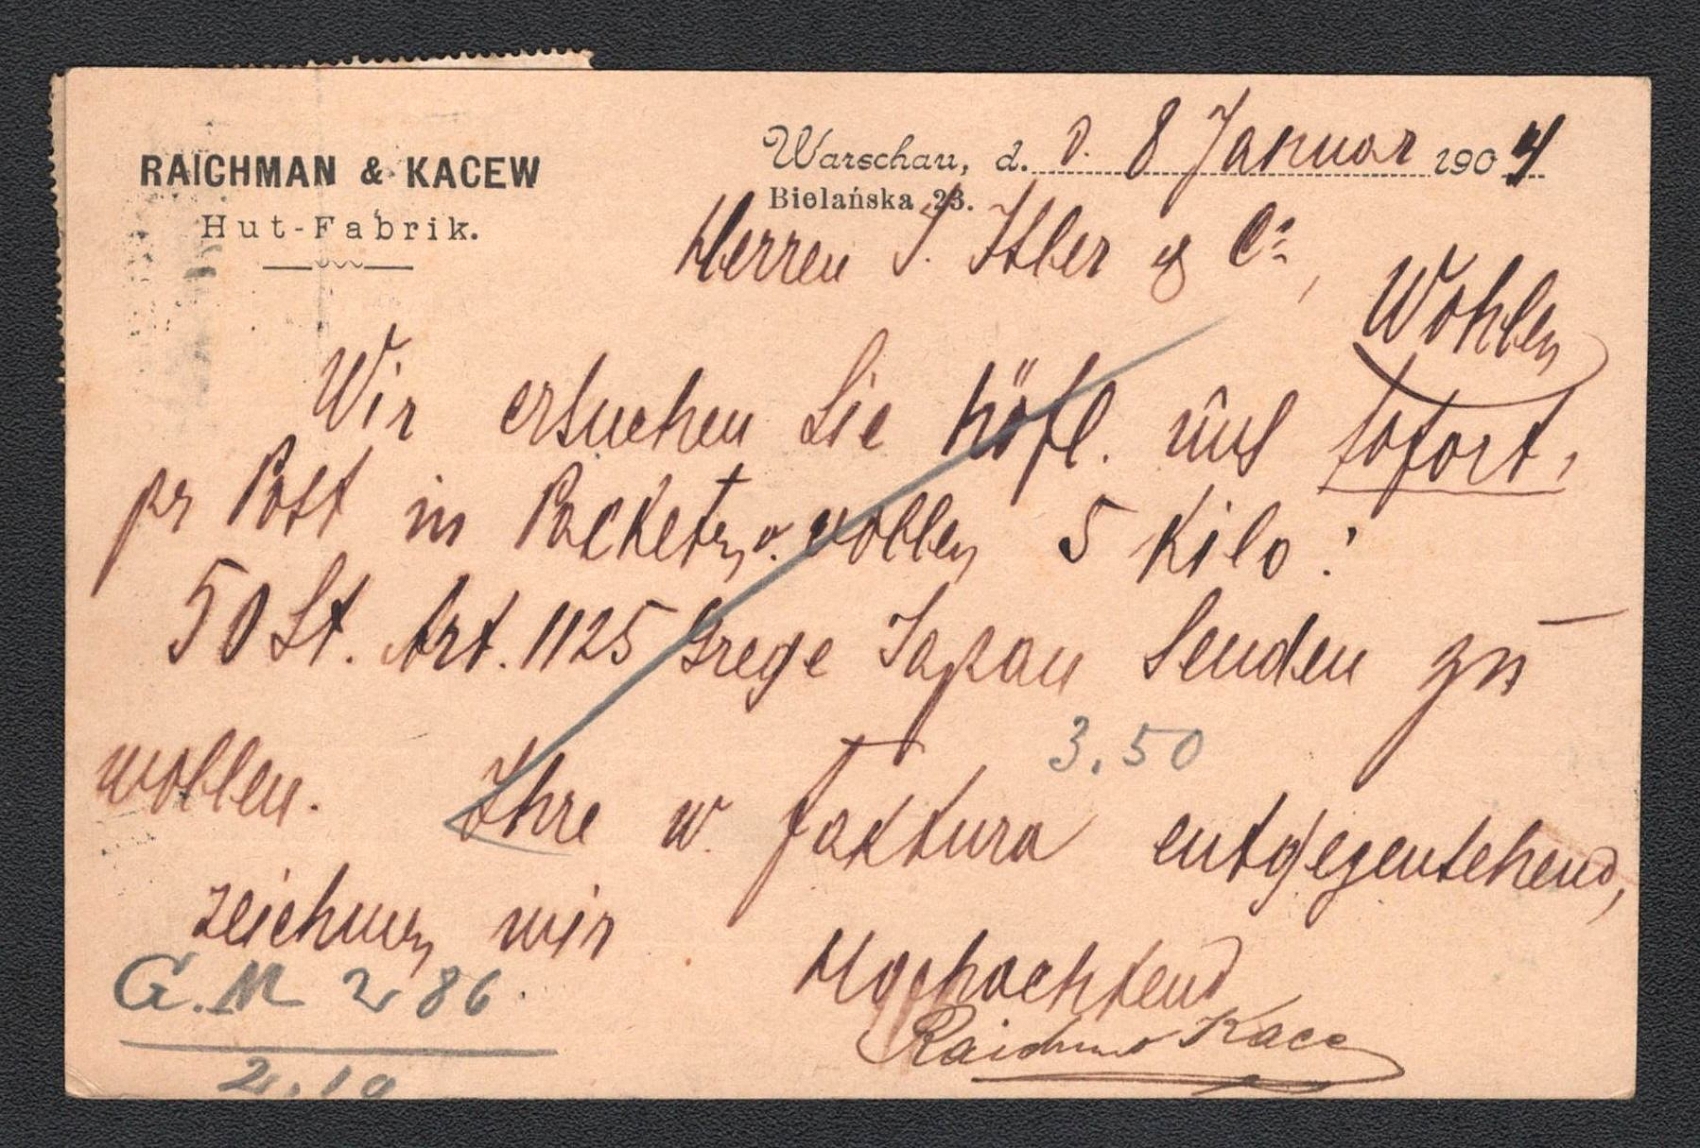 RAICHMAN & KACEW
Hut-Fabrik.
Warschau, d. d. 8 Januar 1904
Bielańska 23.
Herren J. Isler & Cº,
Wohlen
Wir ersuchen Sie höfl. uns sofort,
pr Post in Packeten v. vollen 5 Kilo:
50 St. Art. 1125 Grege Japan senden zu
wollen. Ihre w. Faktura entgegensehend,
3.50
zeichnen wir
Hochachtend
G.M 2 86.
Raichman & Kacew
2.10